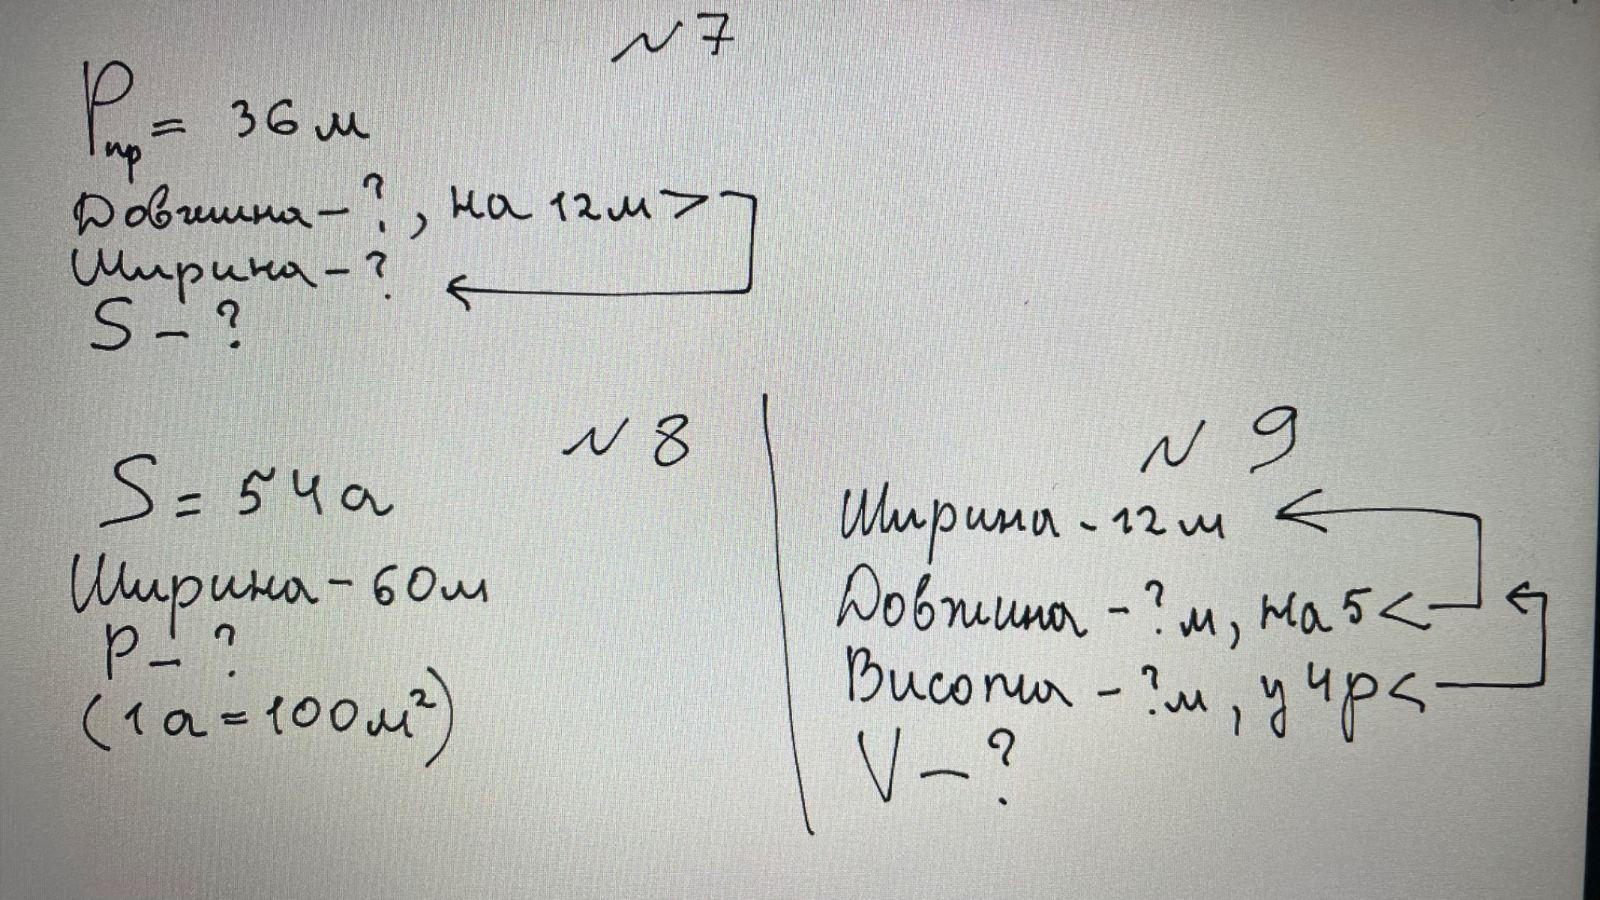 N 7
Pпр = 36 м
Довжина - ?, на 12 м >
Ширина - ?
S - ?
N 8
S = 54 а
Ширина - 60 м
P - ?
(1 а = 100 м²)
N 9
Ширина - 12 м
Довжина - ? м, на 5 <
Висота - ? м, у 4 р <
V - ?